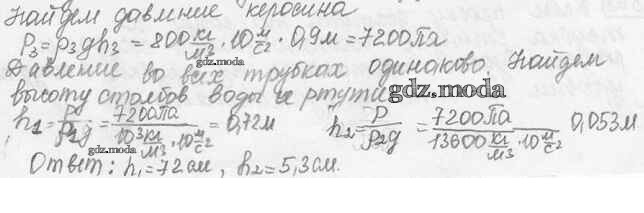 Найдем давление керосина
P₃=ρ₃gh₃ = 800 кг/м³ · 10 м/с² · 0,9м = 7200Па
Давление во всех трубках одинаково. Найдем
высоту столбов воды и ртути.
gdz.moda
h₁ = P/ρ₁g = 7200Па/10³ кг/м³ · 10 м/с² = 0,72м h₂ = P/ρ₂g = 7200Па/13600 кг/м³ · 10 м/с² 0,053м
gdz.moda
gdz.moda
gdz.moda
Ответ: h₁=72см, h₂=5,3см.